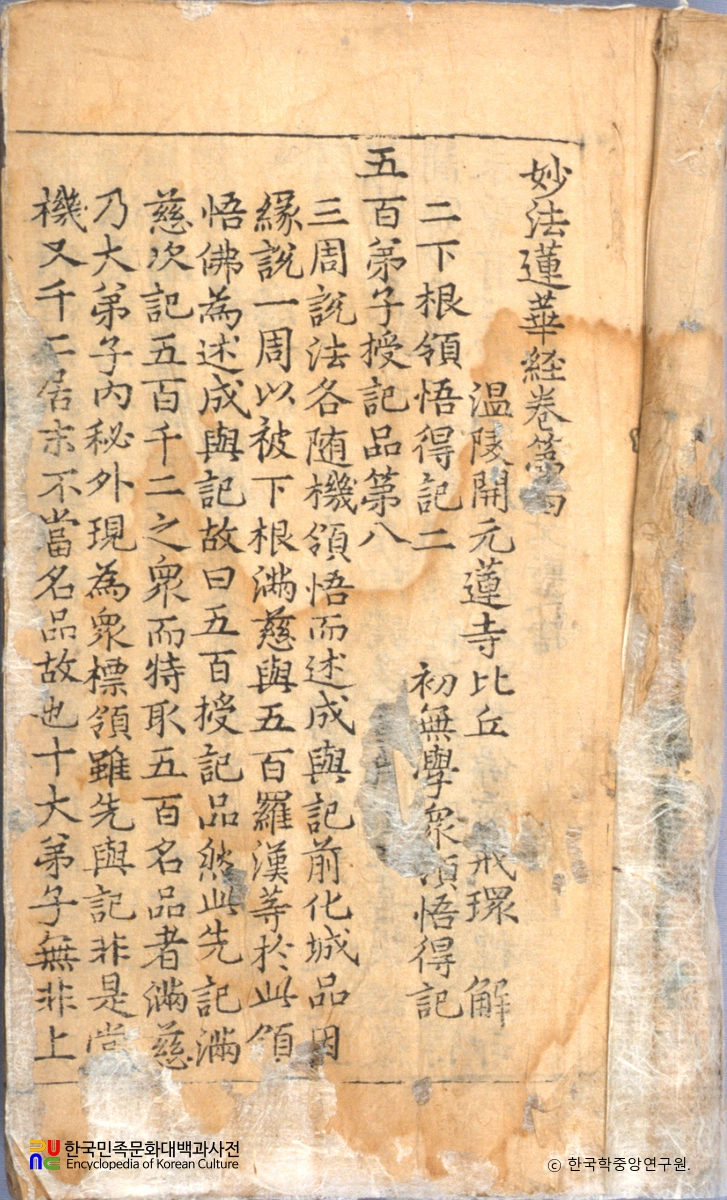 妙法蓮華経卷第四
温陵開元蓮寺比丘 戒環 解
二下根領悟得記二 初無學衆領悟得記
五百弟子授記品第八
三周說法各随機領悟而述成與記前化城品因
緣說一周以被下根滿慈與五百羅漢等於此領
悟佛為述成與記故曰五百授記品然此先記滿
慈次記五百千二之衆而特取五百名品者滿慈
乃大弟子內秘外現為衆標領雖先與記非是當
機又千二居末不當名品故也十大弟子無非上
한국민족문화대백과사전
Encyclopedia of Korean Culture
ⓒ 한국학중앙연구원.